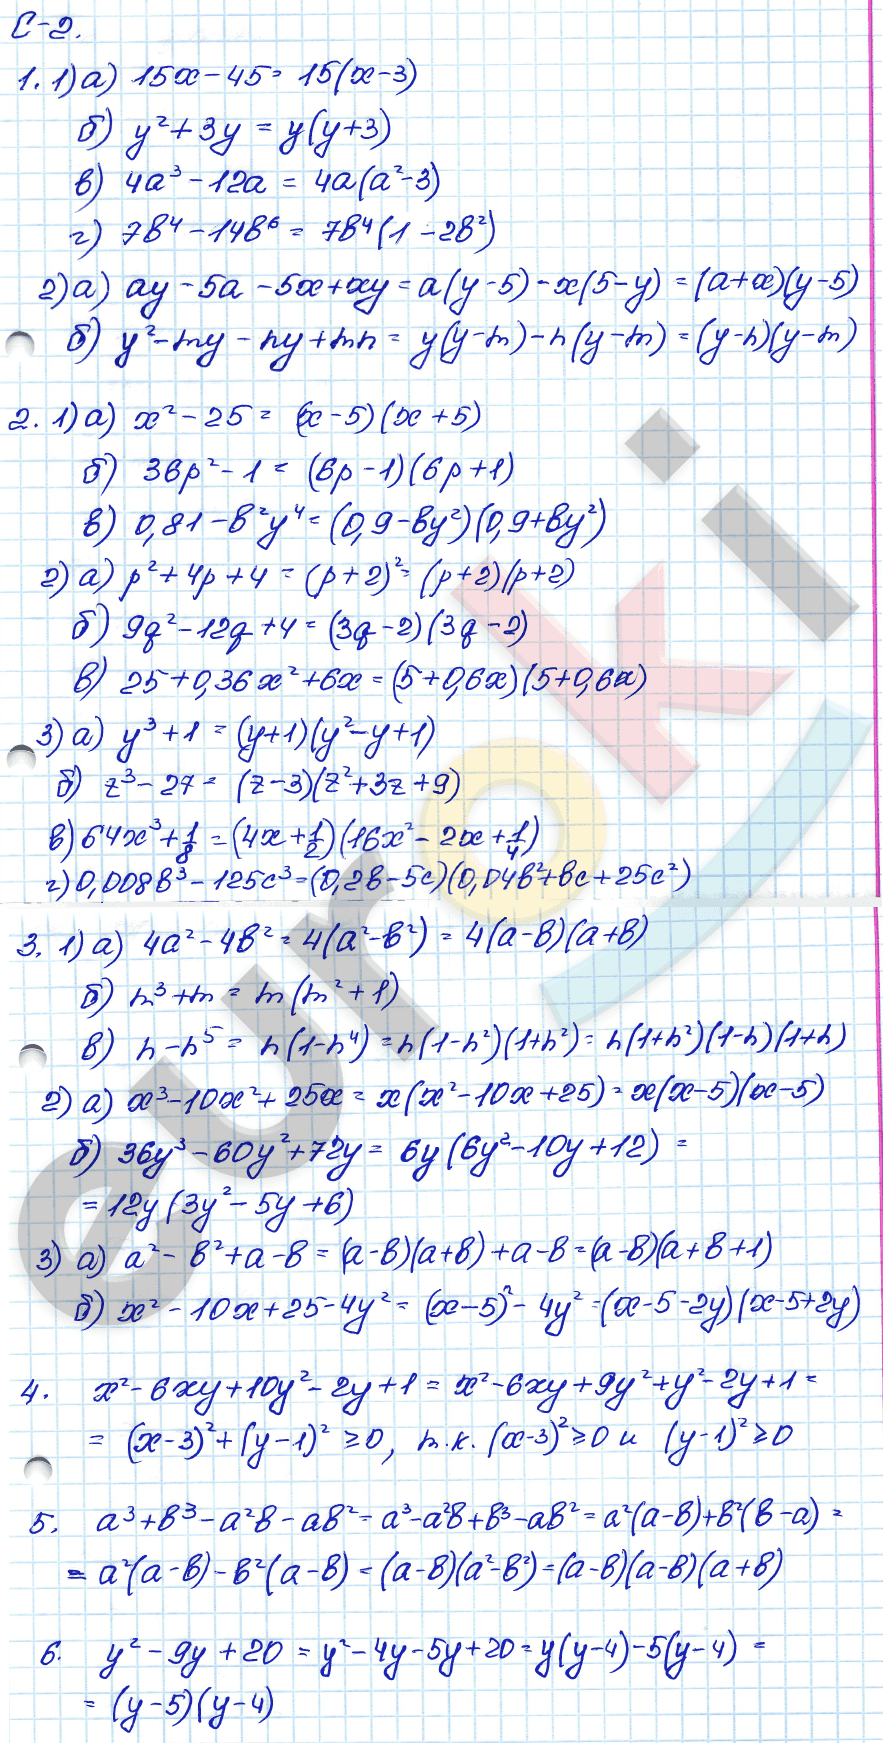 С-2.
1. 1) а) 15x - 45 = 15(x - 3)
б) y² + 3y = y(y + 3)
в) 4a³ - 12a = 4a(a² - 3)
г) 7b⁴ - 14b⁶ = 7b⁴(1 - 2b²)
2) а) ay - 5a - 5x + xy = a(y - 5) - x(5 - y) = (a + x)(y - 5)
б) y² - my - ny + mn = y(y - m) - n(y - m) = (y - n)(y - m)
2. 1) а) x² - 25 = (x - 5)(x + 5)
б) 36p² - 1 = (6p - 1)(6p + 1)
в) 0,81 - b²y⁴ = (0,9 - by²)(0,9 + by²)
2) а) p² + 4p + 4 = (p + 2)² = (p + 2)(p + 2)
б) 9q² - 12q + 4 = (3q - 2)(3q - 2)
в) 25 + 0,36x² + 6x = (5 + 0,6x)(5 + 0,6x)
3) а) y³ + 1 = (y + 1)(y² - y + 1)
б) z³ - 27 = (z - 3)(z² + 3z + 9)
в) 64x³ + 1/8 = (4x + 1/2)(16x² - 2x + 1/4)
г) 0,008b³ - 125c³ = (0,2b - 5c)(0,04b² + bc + 25c²)
3. 1) а) 4a² - 4b² = 4(a² - b²) = 4(a - b)(a + b)
б) m³ + m = m(m² + 1)
в) n - n⁵ = n(1 - n⁴) = n(1 - n²)(1 + n²) = n(1 + n²)(1 - n)(1 + n)
2) а) x³ - 10x² + 25x = x(x² - 10x + 25) = x(x - 5)(x - 5)
б) 36y³ - 60y² + 72y = 6y(6y² - 10y + 12) =
= 12y(3y² - 5y + 6)
3) а) a² - b² + a - b = (a - b)(a + b) + a - b = (a - b)(a + b + 1)
б) x² - 10x + 25 - 4y² = (x - 5)² - 4y² = (x - 5 - 2y)(x - 5 + 2y)
4. x² - 6xy + 10y² - 2y + 1 = x² - 6xy + 9y² + y² - 2y + 1 =
= (x - 3)² + (y - 1)² ≥ 0, т.к. (x - 3)² ≥ 0 и (y - 1)² ≥ 0
5. a³ + b³ - a²b - ab² = a³ - a²b + b³ - ab² = a²(a - b) + b²(b - a) =
= a²(a - b) - b²(a - b) = (a - b)(a² - b²) = (a - b)(a - b)(a + b)
6. y² - 9y + 20 = y² - 4y - 5y + 20 = y(y - 4) - 5(y - 4) =
= (y - 5)(y - 4)
euroki